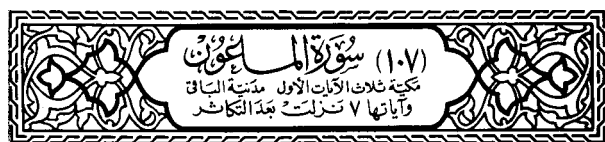 (١٠٧) سُورَةُ المَاعُون
مكية ثلاث الآيات الأول مدنية الباقي
وآياتها ٧ نزلت بعد التكاثر